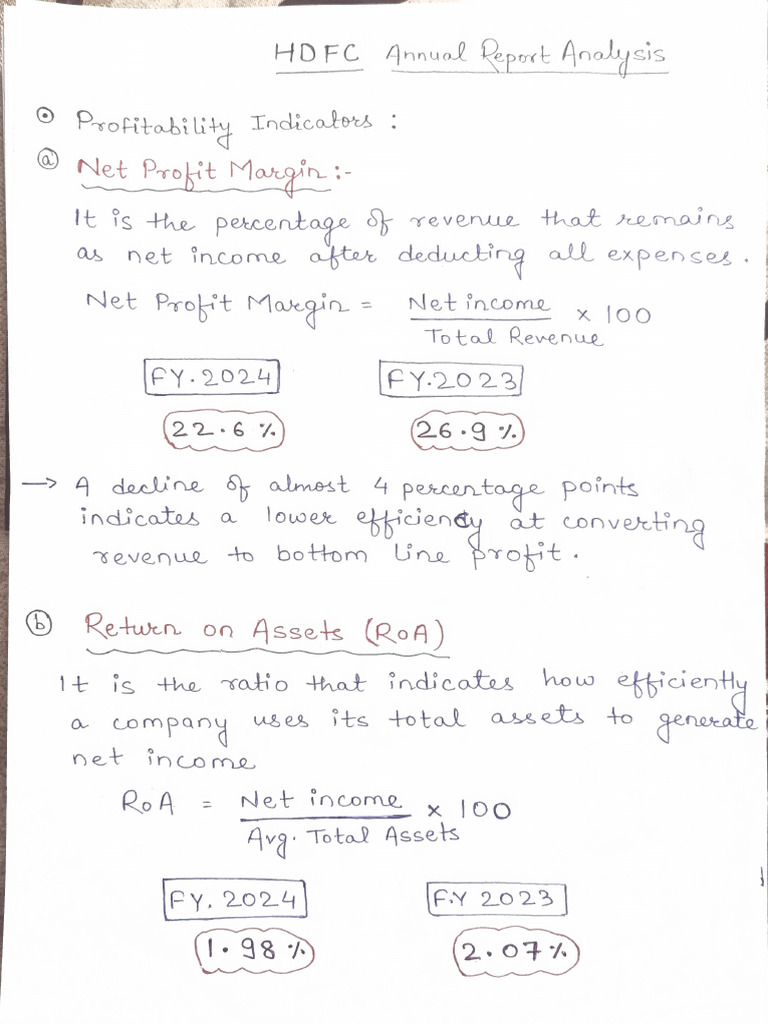 HDFC Annual Report Analysis
Profitability Indicators :
a Net Profit Margin :-
It is the percentage of revenue that remains
as net income after deducting all expenses.
Net Profit Margin = Net income × 100
Total Revenue
FY.2024 FY.2023
22.6 % 26.9 %
→ A decline of almost 4 percentage points
indicates a lower efficiency at converting
revenue to bottom line profit.
b Return on Assets (RoA)
It is the ratio that indicates how efficiently
a company uses its total assets to generate
net income
RoA = Net income × 100
Avg. Total Assets
FY. 2024 F.Y 2023
1.98 % 2.07 %